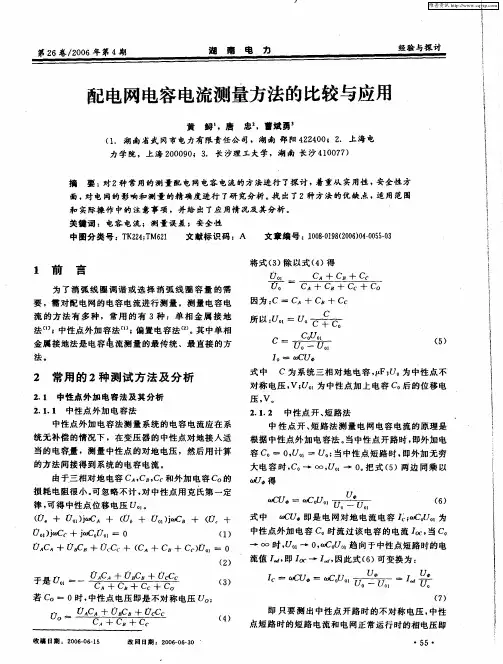 维普资讯 http://www.cqvip.com
第26卷/2006年第4期
湖 南 电 力
经验与探讨
配电网电容电流测量方法的比较与应用
黄 鲟¹，唐 忠²，曹斌勇³
(1. 湖南省武冈市电力有限责任公司，湖南 邵阳 422400；2. 上海电
力学院，上海 200090；3. 长沙理工大学，湖南 长沙 410077)
摘 要：对2种常用的测量配电网电容电流的方法进行了探讨，着重从实用性，安全性方
面，对电网的影响和测量的精确度进行了研究分析。找出了2种方法的优缺点，适用范围
和实际操作中的注意事项，并给出了应用情况及其分析。
关键词：电容电流；测量误差；安全性
中图分类号：TK224;TM621 文献标识码：A 文章编号：1008-0198(2006)04-0055-03
1 前 言
为了消弧线圈调谐或选择消弧线圈容量的需
要，需对配电网的电容电流进行测量。测量电容电
流的方法有多种，常用的有3种：单相金属接地
法⁽¹⁾；中性点外加容法⁽¹⁾；偏置电容法⁽²⁾。其中单相
金属接地法是电容电流测量的最传统、最直接的方
法。
2 常用的2种测试方法及分析
2.1 中性点外加电容法及其分析
2.1.1 中性点外加电容法
中性点外加电容法测量系统的电容电流应在系
统无补偿的情况下，在变压器的中性点对地接入适
当的电容量，测量中性点的对地电压，然后用计算
的方法间接得到系统的电容电流。
由于三相对地电容 CA,CB,CC 和外加电容 C0 的
损耗电阻很小，可忽略不计，对中性点用克氏第一定
律，可得中性点位移电压 U̇01：
(U̇A + U̇01)jωCA + (U̇B + U̇01)jωCB + (U̇C +
U̇01)jωCC + jωC0U̇01 = 0 (1)
U̇ACA + U̇BCB + U̇CCC + (CA + CB + CC)U̇01 = 0
(2)
于是 U̇01 = − (U̇ACA + U̇BCB + U̇CCC) / (CA + CB + CC + C0) (3)
若 C0 = 0 时，中性点电压即是不对称电压 U̇0：
U̇0 = (U̇ACA + U̇BCB + U̇CCC) / (CA + CB + CC) (4)
将式(3)除以式(4)得
U̇01 / U̇0 = (CA + CB + CC) / (CA + CB + CC + C0)
因为：C = CA + CB + CC
所以：U01 = U0 C / (C + C0)
C = C0U01 / (U0 − U01) (5)
I0 = ωCUΦ
式中 C 为系统三相对地电容，μF；U0 为中性点不
对称电压，V；U01 为中性点加上电容 C0 后的位移电
压，V。
2.1.2 中性点开、短路法
中性点开、短路法测量电网电容电流的原理是
根据中性点外加电容法。当中性点开路时，即外加电
容 C0 = 0,U01 = U0；当中性点短路时，即外加无穷
大电容时，C0 → ∞,U01 → 0。把式(5)两边同乘以
ωUΦ 得
ωCUΦ = ωC0U01 UΦ / (U0 − U01) (6)
式中 ωCUΦ 即是电网对地电流电容 IC；ωC0U01 为
中性点外加电容 C0 时流过该电容的电流 I0C，当 C0
→ ∞ 时，U01 → 0，ωC0U01 趋向于中性点短路时的电
流值 Iod，即 I0C → Iod，因此式(6)可变换为：
IC = ωCUΦ = ωC0U01 UΦ / (U0 − U01) = Iod UΦ / U0
(7)
即只要测出中性点开路时的不对称电压，中性
点短路时的短路电流和电网正常运行时的相电压即
收稿日期：2006-06-15 改回日期：2006-06-30
·55·